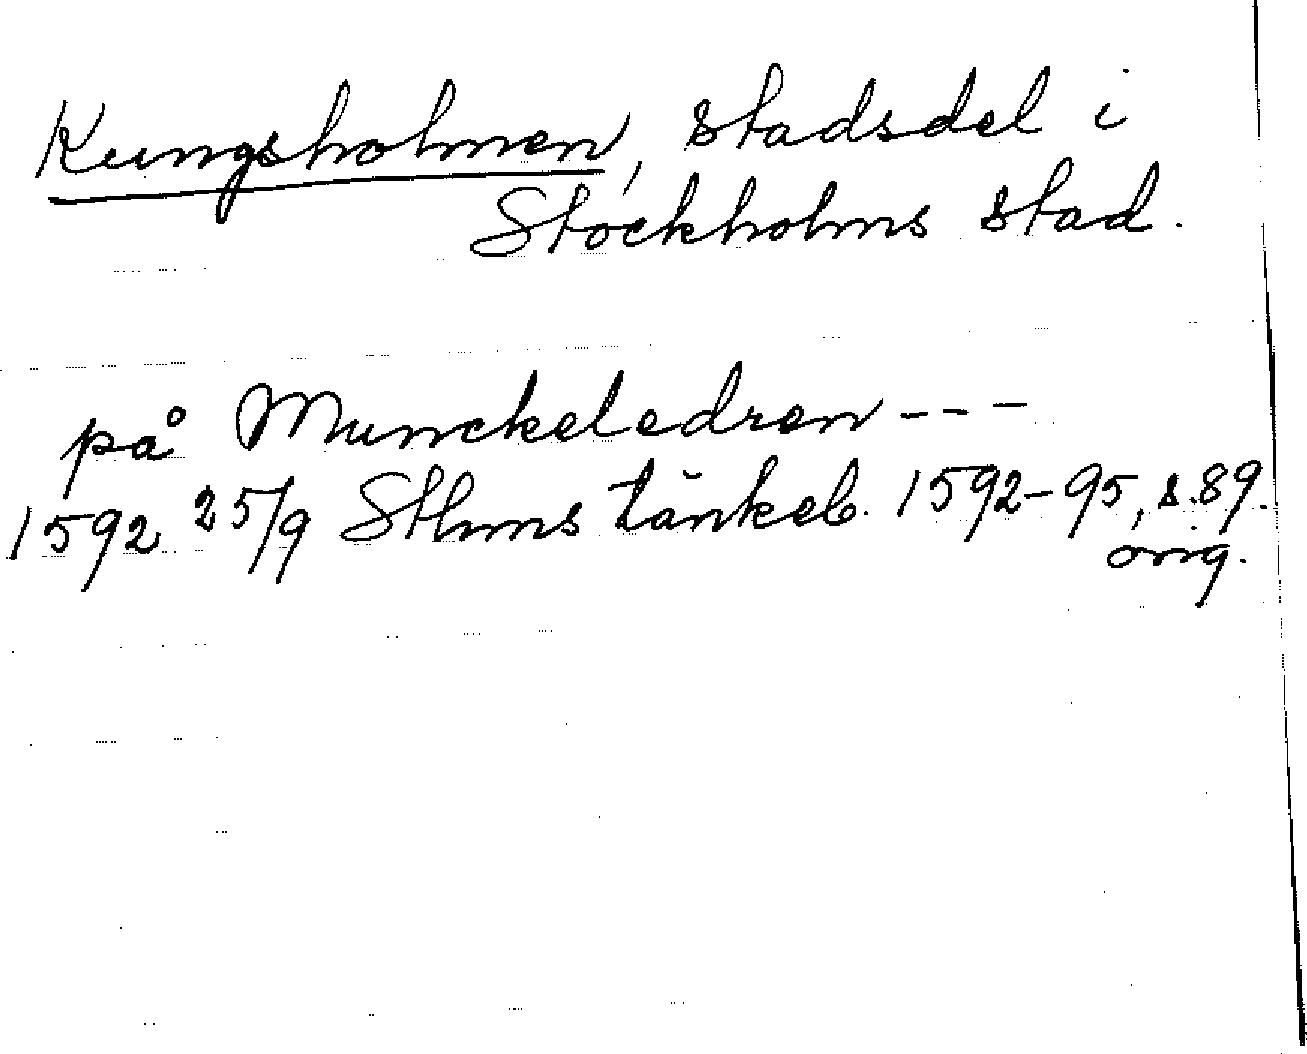 Kungsholmen, stadsdel i
Stockholms stad.
på Munckeledren ---
1592 25/9 Sthms tänkeb. 1592-95, s. 89.
orig.